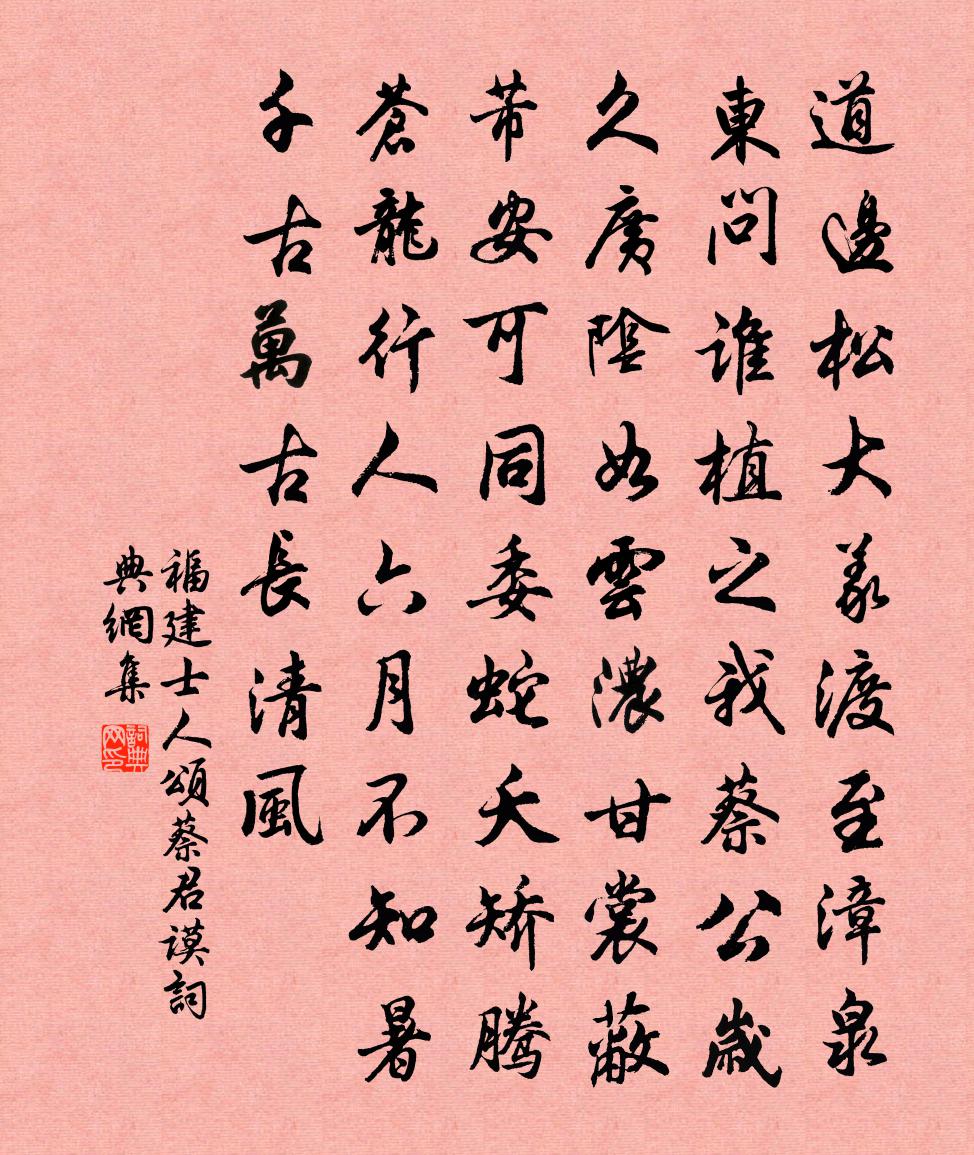 道邊松大義渡至漳泉
東問誰植之我蔡公歲
久廣陰如雲濃甘裳蔽
芾安可同委蛇夭矯騰
蒼龍行人六月不知暑
千古萬古長清風
福建士人頌蔡君謨詞
典網集
詞典网印